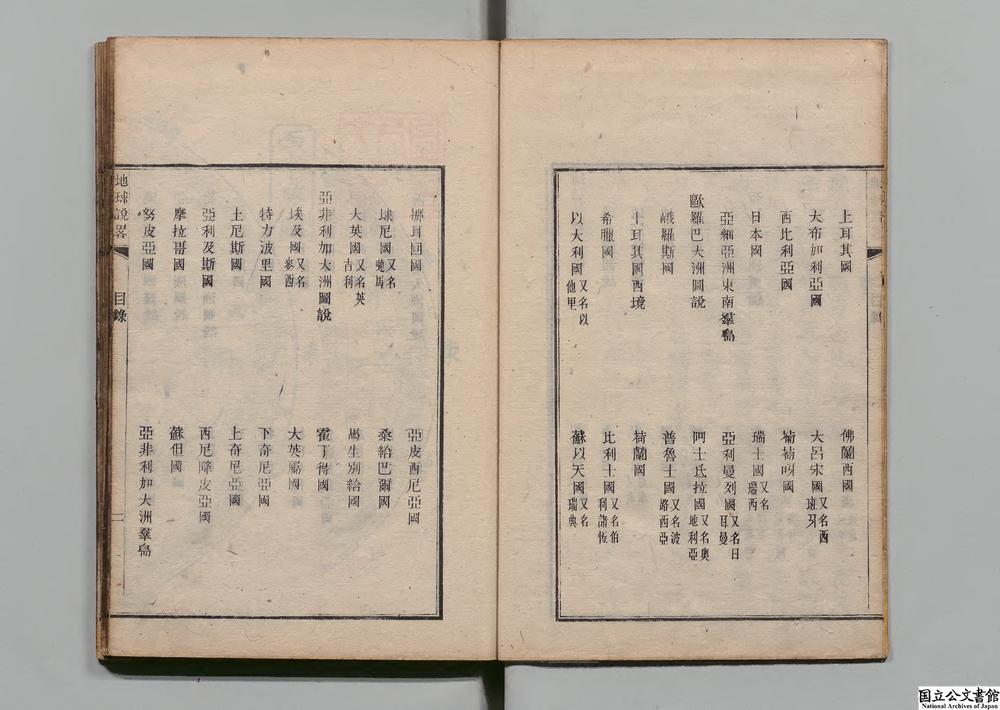 土耳其國
大布加利亞國
西比利亞國
日本國
亞細亞洲東南羣島
歐羅巴大洲圖說
峨羅斯國
土耳其國西境
希臘國
以大利國 又名以他里
佛蘭西國
大呂宋國 又名西班牙
葡萄呀國
瑞士國 又名瑞西
亞利曼列國 又名日耳曼
阿士氐拉國 又名奧地利亞
普魯士國 又名波路西亞
荷蘭國
比利士國 又名伯利諸恆
蘇以天國 又名瑞典
挪耳回國
埭尼國 又名馬
大英國 又名英吉利
亞非利加大洲圖說
埃及國 又名麥西
特力波里國
土尼斯國
亞利及斯國
摩拉哥國
努皮亞國
亞皮西尼亞國
桑給巴爾國
馬生別給國
霍丁得國
大英屬國
下奇尼亞國
上奇尼亞國
西尼降皮亞國
蘇但國
亞非利加大洲羣島
地球說畧
目錄
二
国立公文書館
National Archives of Japan